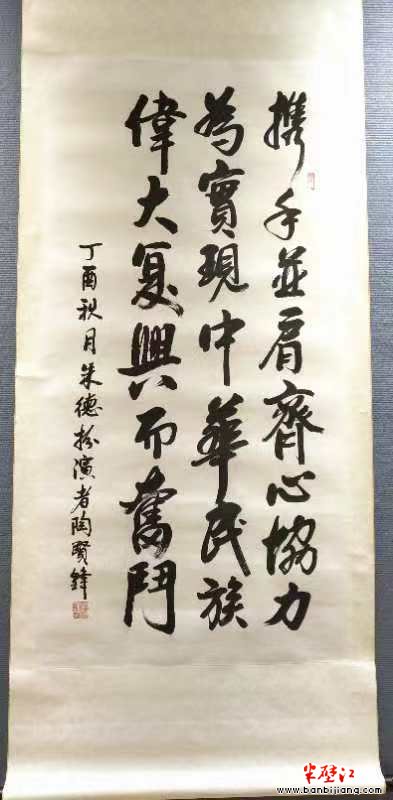 携手並肩齊心協力
為實現中華民族
偉大复興而奮鬥
丁酉秋月朱德扮演者陶賢鋒
半壁江
www.banbijiang.com